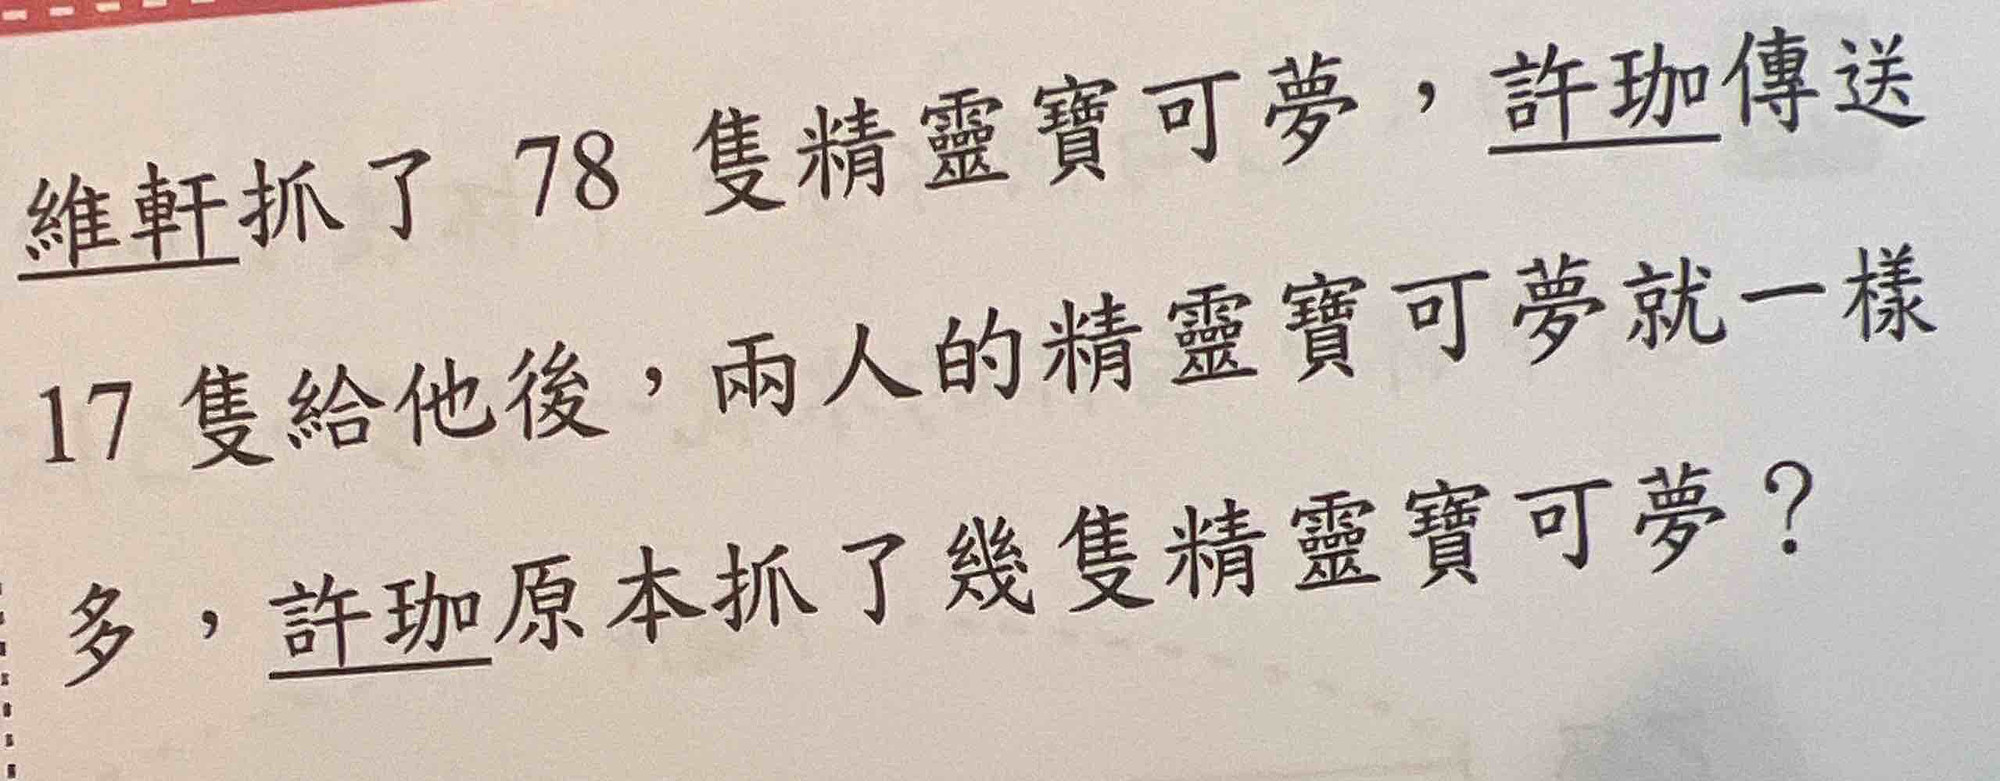 維軒抓了 78 隻精靈寶可夢，許珈傳送
17 隻給他後，兩人的精靈寶可夢就一樣
多，許珈原本抓了幾隻精靈寶可夢？